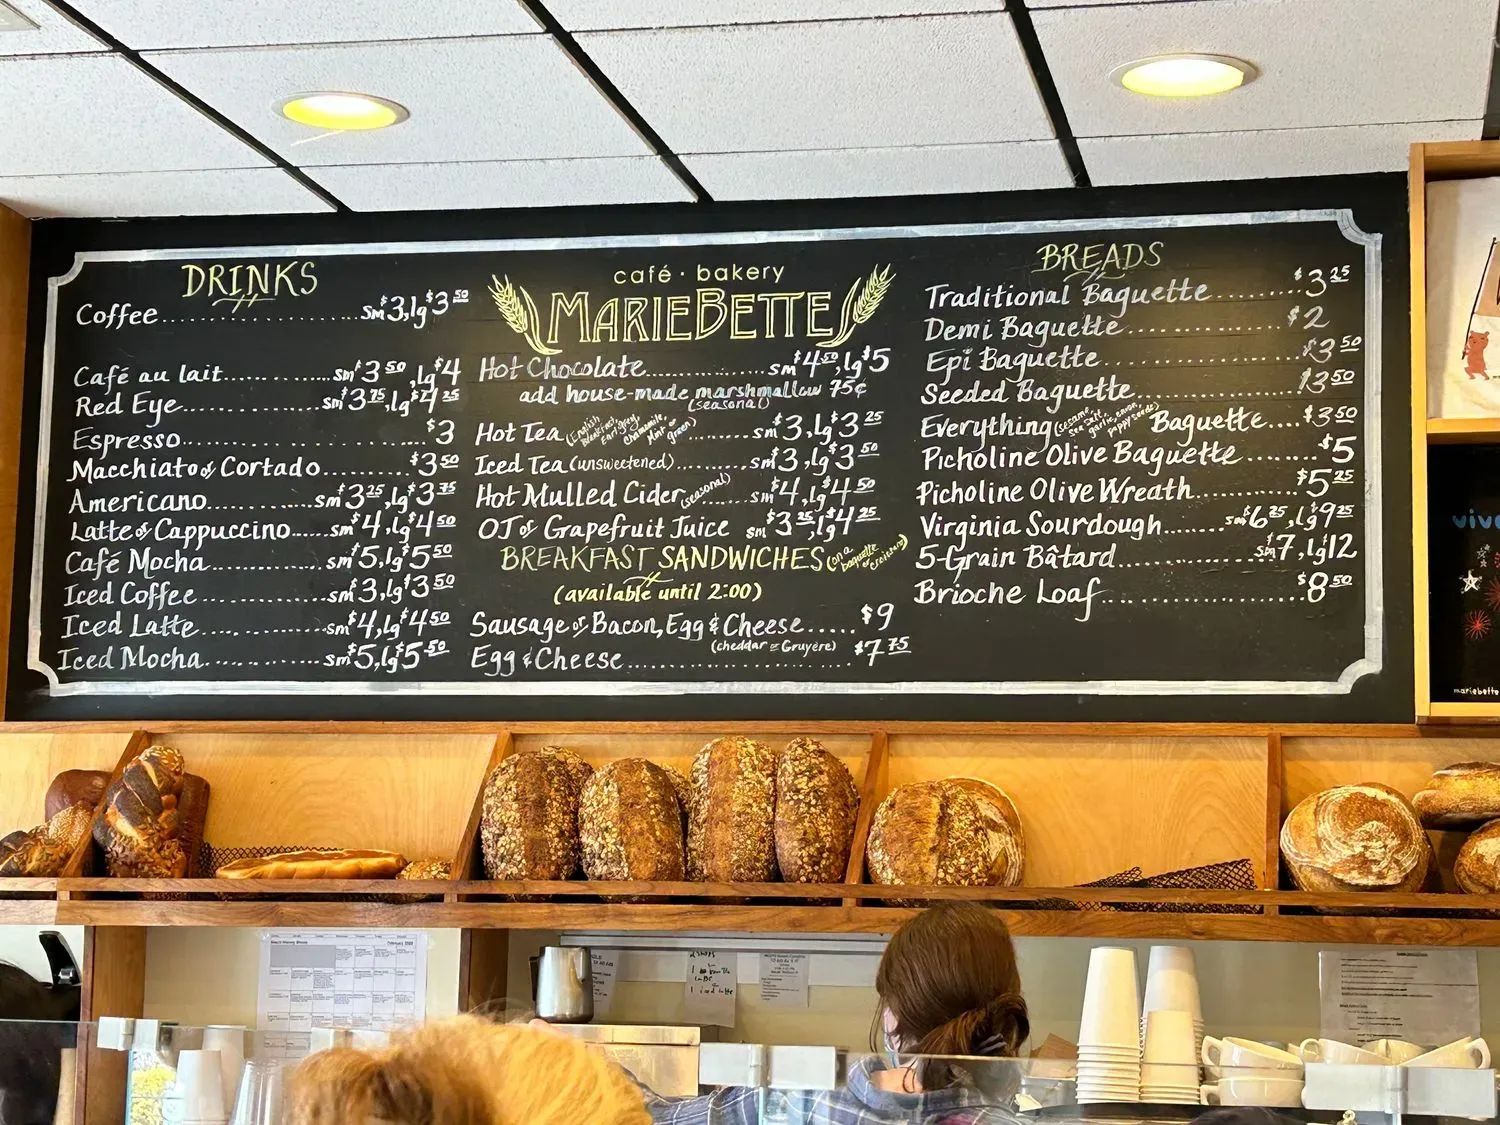 DRINKS
Coffee.................sm $3, lg $3 50
Café au lait...............sm $3 50, lg $4
Red Eye...............sm $3 75, lg $4 25
Espresso.....................$3
Macchiato or Cortado..........$3 50
Americano..............sm $3 25, lg $3 75
Latte or Cappuccino......sm $4, lg $4 50
Café Mocha..............sm $5, lg $5 50
Iced Coffee..............sm $3, lg $3 50
Iced Latte..............sm $4, lg $4 50
Iced Mocha..............sm $5, lg $5 50
café · bakery
MARIEBETTE
Hot Chocolate..............sm $4 50, lg $5
add house-made marshmallow 75¢
(seasonal)
Hot Tea (English Breakfast, Earl Grey, Chamomile, Mint or green)........sm $3, lg $3 25
Iced Tea (unsweetened)........sm $3, lg $3 50
Hot Mulled Cider (seasonal).......sm $4, lg $4 50
OJ or Grapefruit Juice sm $3 25, lg $4 25
BREAKFAST SANDWICHES (on a baguette or croissant)
(available until 2:00)
Sausage or Bacon, Egg & Cheese.....$9
(cheddar or Gruyère)
Egg & Cheese......................$7 75
BREADS
Traditional Baguette.........$3 25
Demi Baguette...............$2
Epi Baguette..................$3 50
Seeded Baguette...............$3 50
Everything (sesame, sea salt, garlic, onion, poppy seeds) Baguette....$3.50
Picholine Olive Baguette........$5
Picholine Olive Wreath..........$5 25
Virginia Sourdough.......sm $6 25, lg $9 25
5-Grain Bâtard..............sm $7, lg $12
Brioche Loaf...................$8 50
viv
mariebette